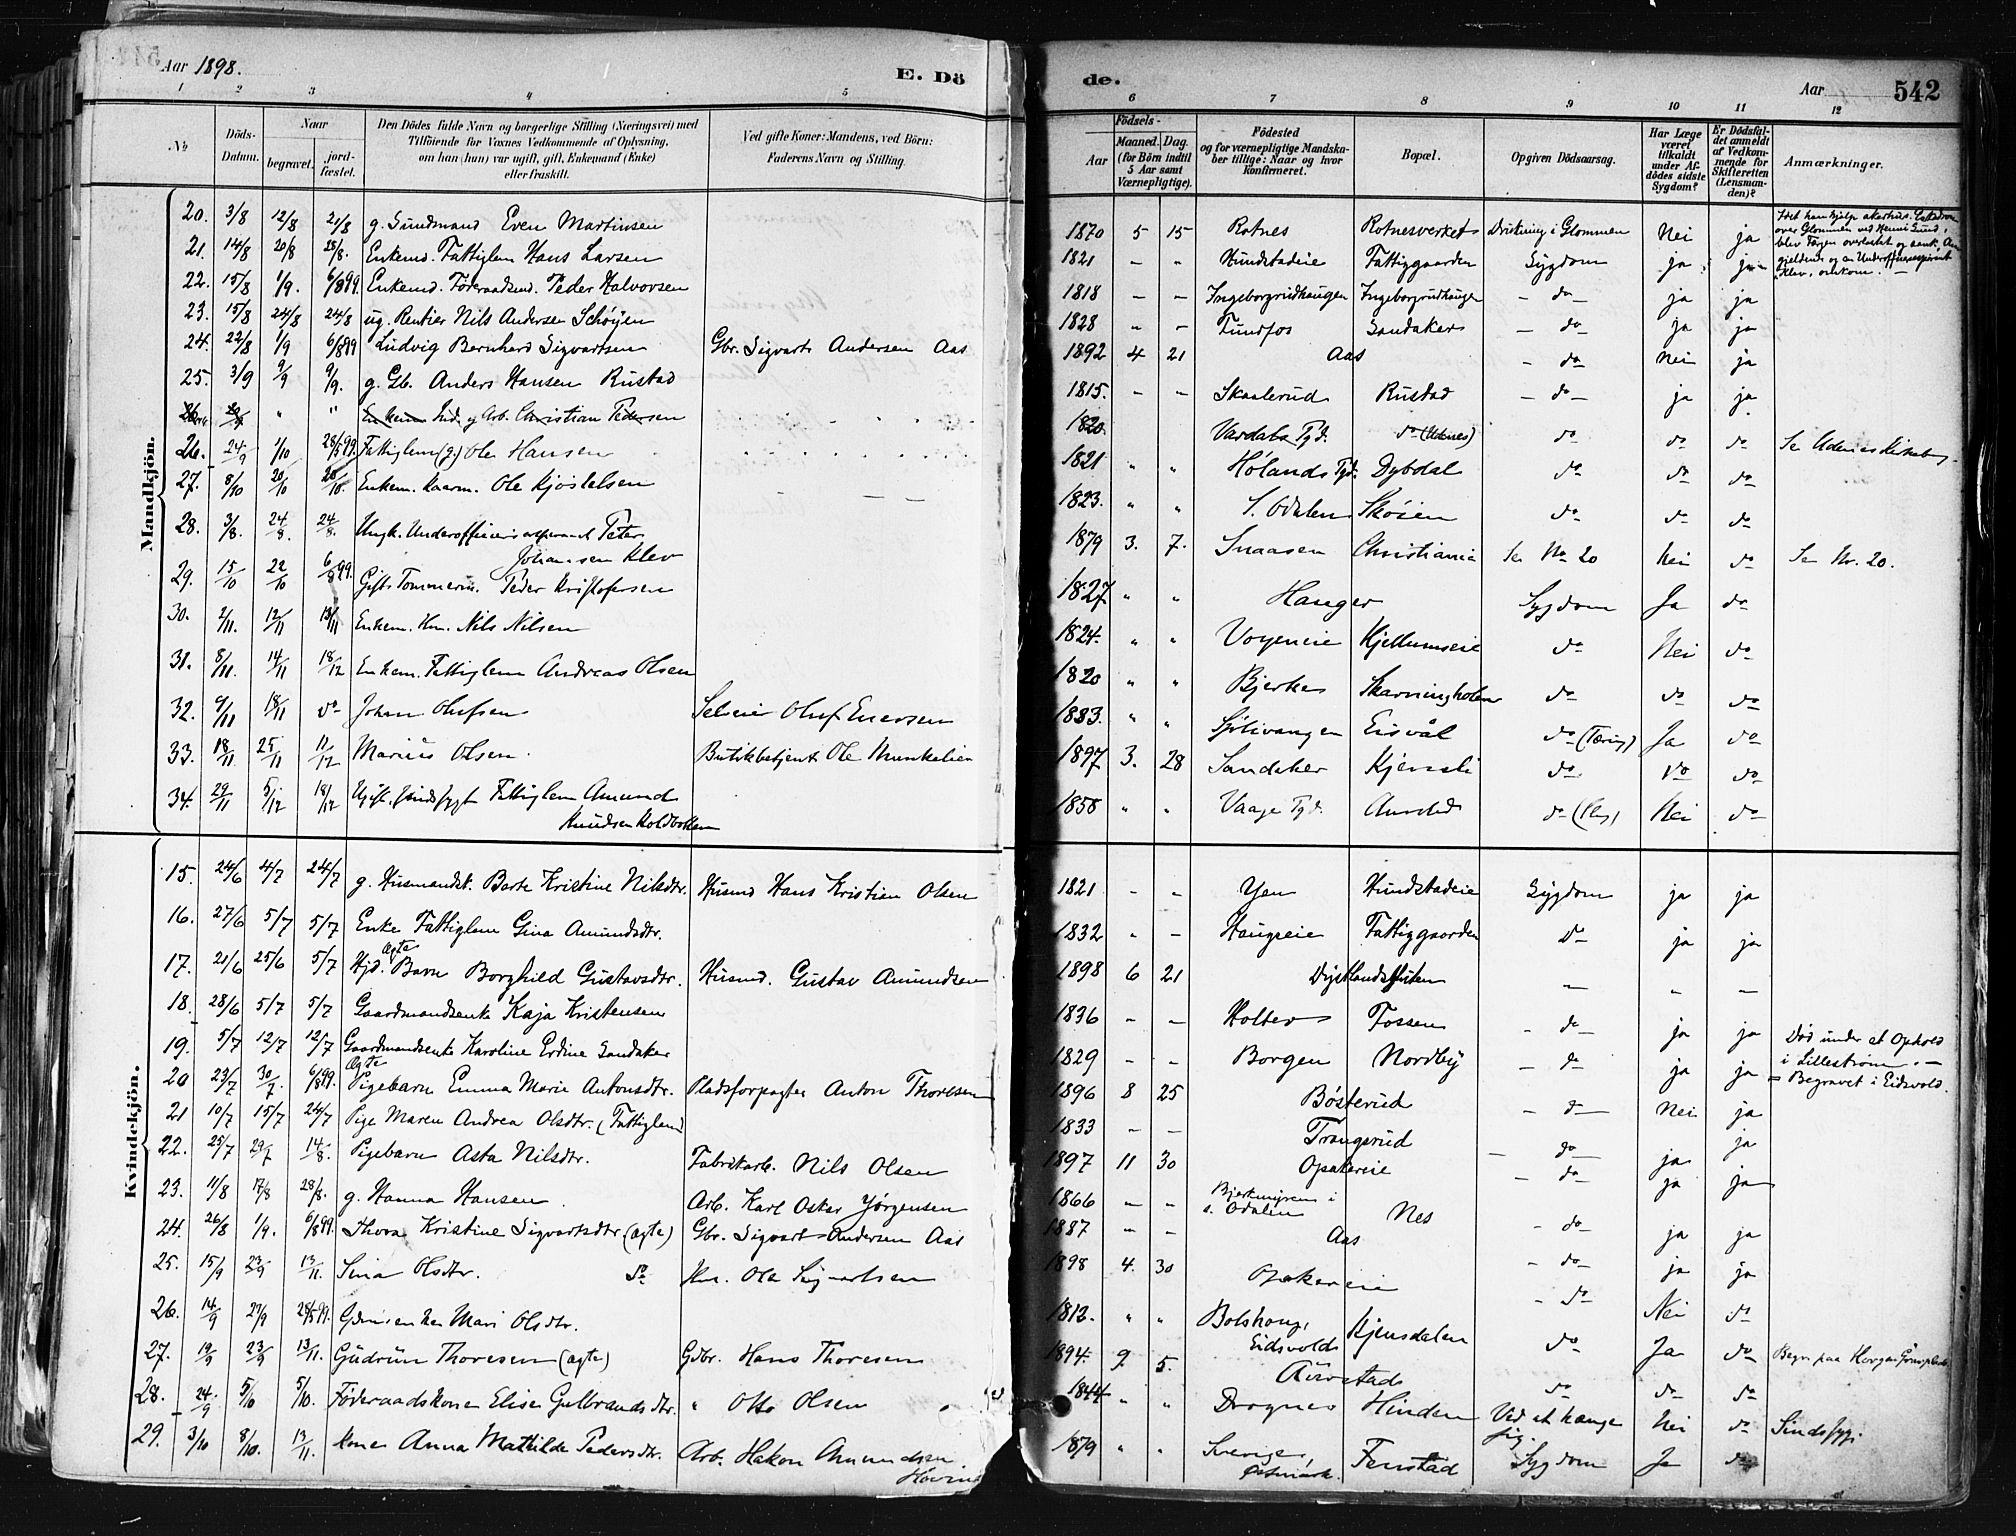 Aar 1898.
E. Dö
de.
Aar
542
1 2 3 4 5
6 7 8 9 10 11 12
No
Döds-Datum.
Naar
begravet.
jord-fæstet.
Den Dödes fulde Navn og borgerlige Stilling (Næringsvei) med
Tilföiende for Voxnes Vedkommende af Oplysning,
om han (hun) var ugift, gift, Enkemand (Enke)
eller fraskilt.
Ved gifte Koner: Mandens, ved Börn:
Faderens Navn og Stilling.
Födsels-
Aar
Maaned. Dag.
(for Börn indtil 5 Aar samt Værnepligtige).
Födested
og for værnepligtige Mandska-
ber tillige: Naar og hvor
konfirmeret.
Bopæl.
Opgiven Dödsaarsag.
Har Læge været tilkaldt under Af-dödes sidste Sygdom?
Er Dödsfal-det anmeldt af Vedkom-mende for Skifteretten (Lensman-den)?
Anmærkninger.
Mandkjön.
20. 3/8 12/8 21/8 g. Sundmand Even Martinsen 1870 5 15 Rotnes Rotnesverket Drukning i Glommen Nei ja
over Glommen ved Henni Sund,
blev Færgen overlastet og sank,
21. 14/8 20/8 28/8. Enkemd. Fattiglem Hans Larsen 1821 - - Hundstadeie Fattiggaarden Sygdom ja ja
22. 15/8 1/9. 6/8 99. Enkemd. Föderaadsmd. Peder Halvorsen 1818 - - Ingeborgrudhaugen Ingeborgrudhaugen - do - ja ja
23. 15/8 24/8 24/8 ug. Rentier Nils Andersen Schöyen 1828 " - Fundfos Sandaker - do ja ja
24. 22/8 1/9 6/8 99 Ludvig Bernhard Sigvartsen Gbr. Sigvart Andersen Aas 1892 4 21 Aas - do nei ja
25. 3/9 9/9 9/9. g. Gb. Anders Hansen Rustad 1815. - - Skaalerud Rustad - do - ja ja
" " Enkem. Ind. og Arb. Christian Pedersen 1820. Vardals Pgd. do (Udenes) do do do Se Udenes
26. 24/9 1/10 28/5 99. Fattiglem (g.) Ole Hansen 1821 " " Hölands Pgd. Dybdal do do do
27. 8/10 20/10 20/10. Enkem. Kaarm. Ole Kjöstelsen 1823. " " S. Odalen Skösen do do do
28. 3/8. 24/8. 24/8 Ungk. Underofficersaspirant Peter
Johansen Klev 1879 3. 7. Snaasen Christiania Se No 20 Nei do Se Nr. 20.
29. 15/10 22/10 6/8 99. Gift Tömmerm. Peder Kristofersen 1827 " " Hanger Sygdom Ja do
30. 2/11. 12/11 13/11 Enkem. Hm. Nils Nilsen 1824. " " Voyeneie Kjellumseie do Nei do
31. 8/11 14/11 18/12 Enkem. Fattiglem Andreas Olsen 1820 " " Bjerke Skarningholen do do do
32. 9/11 18/11 do Johan Olufsen Selveier Oluf Evensen 1883. " " Sjölivangen Eisvål do (Tæring) Ja do
33. 18/11 25/11 11/12 Marius Olsen. Butikbetjent Ole Munkelien 1897 3. 28 Sandaker Kjensli do do do
34. 29/11 5/12 18/12 Ugift, sindssygt Fattiglem Amund
Knudsen Holdbakken 1858 " " Vaage Pgd. Aurstad Nei do
Kvindekjön.
15. 24/6 4/7 24/7 g. Husmandsk. Berte Kristine Nilsdtr. Husmd Hans Kristian Olsen 1821 - - Yen Hundstadeie Sygdom ja ja
16. 27/6 5/7 5/7 Enke Fattiglem Gina Amundsdtr. 1832 - - Haugseie Fattiggaarden do ja ja
17. 21/6 25/6 5/7 Hjd. Ægte Barn Borghild Gustavsdtr. Husmd. Gustav Amundsen 1898 6 21 - - -
18. 28/6 5/7 5/7 Gaardmandsenke Kaja Kristensen 1836 - - Holter Fossen - do ja ja
19. 5/7 12/7 12/7 Gaardmandsenke Karoline Erdine Sandaker 1829 - - Borgen Nordby - do ja ja Död under et Ophold
i Lilleström. -
= Begravet i Eidsvold.
20 23/7 30/7. 6/8 99. Ægte Pigebarn Emma Marie Antonsdtr. Pladsforpagter Anton Thoresen 1896 8 25 Bösterud - do - nei ja
21 10/7 15/7 24/7 Pige Maren Andrea Olsdtr. (Fattiglem) 1833 - - Trangsrud - do ja ja
22. 25/7 29/7 14/8. Pigebarn Asta Nilsdtr. Fabrikarb. Nils Olsen 1897 11 30 Opakereie - do ja ja
23. 11/8 17/8 28/8. g. Hanna Hansen Arb. Karl Oskar Jörgensen 1866 - - Bjerkmyren i
s. Odalen Nes - do ja ja
24. 26/8 1/9. 6/8 99. Thora Kristine Sigvartsdtr (ægte) Gbr. Sigvart Andersen Aas 1887 - - Aas - do ja ja
25. 15/9 23/9 13/11. Sina Olsdtr. do Hm. Ole Sigvartsen 1898 4. 30 Opakereie - do Nei do
26. 14/9 21/9 28/5 99. Gdmsenke Mari Olsdtr. 1812. " " Bolshoug,
Eidsvold Kjensdalen do Ja do
27. 19/9 23/9 13/11. Gudrun Thoresen (ægte) Gdbr. Hans Thoresen 1894. 9. 5. Aurstad do do do Begr. paa Horgen
28. 24/9 5/10 5/10. Föderaadskone Elise Gulbrandsdtr. " Otto Olsen 1844 " " Dragnes Hinden Ved at hænge
sig. Nei do Sindssyg.
29. 3/10 8/10. 13/11. Kone Anna Mathilde Pedersdtr. Arb. Hakon Amundsen
1879 " " Sverige, Östmark. Fenstad Sygdom Ja do